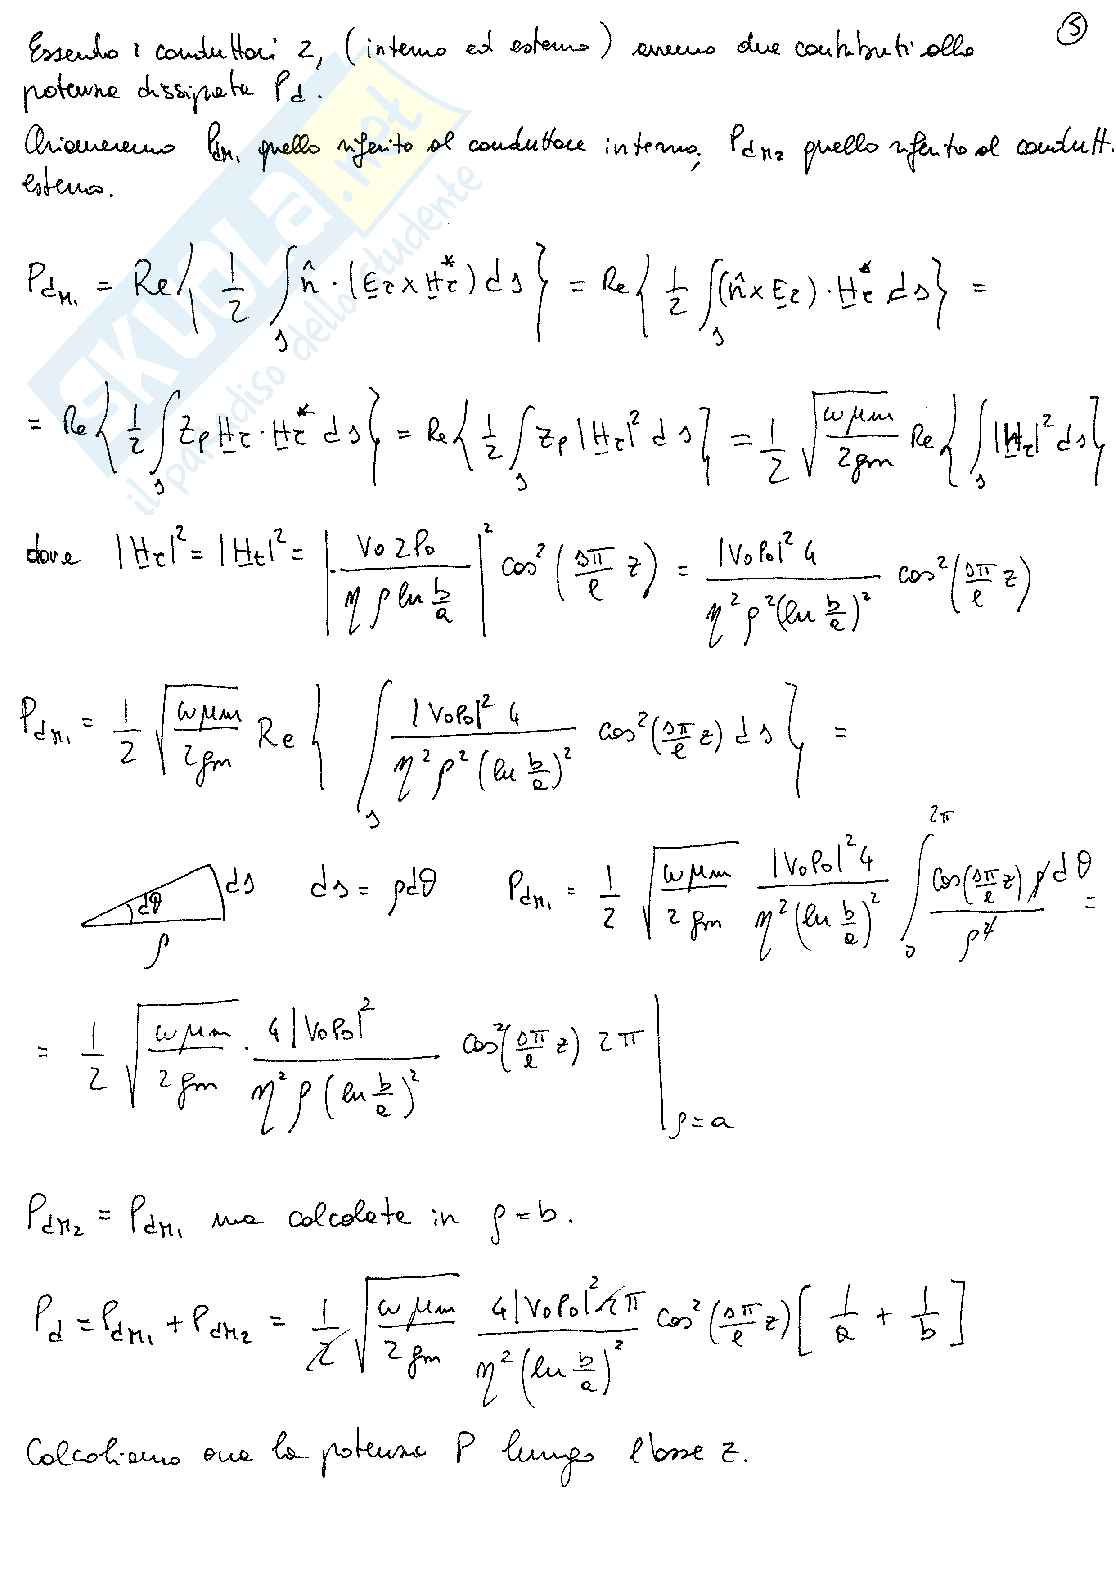 5
Essendo i conduttori 2, (interno ed esterno) avremo due contributi alla
potenza dissipata Pd.
Chiameremo PdM1 quello riferito al conduttore interno, PdM2 quello riferito al condutt.
esterno.
PdM1 = Re{ 1/2 ∫s n̂ · (Eτ × Hτ*) ds } = Re{ 1/2 ∫s (n̂ × Eτ) · Hτ* ds } =
= Re{ 1/2 ∫s Zp Hτ · Hτ* ds } = Re{ 1/2 ∫s Zp |Hτ|² ds } = 1/2 √(ωμm/2gm) Re{ ∫s |Hτ|² ds }
dove |Hτ|² = |Ht|² = | V0 2P0 / (η ρ ln b/a) |² cos² (sπ/l z) = |V0P0|² 4 / (η² ρ² (ln b/a)²) cos² (sπ/l z)
PdM1 = 1/2 √(ωμm/2gm) Re{ ∫s |V0P0|² 4 / (η² ρ² (ln b/a)²) cos² (sπ/l z) ds } =
dθ ρ ds ds = ρdθ PdM1 = 1/2 √(ωμm/2gm) |V0P0|² 4 / (η² (ln b/a)²) ∫0^2π cos(sπ/l z) ρdθ / ρ² =
= 1/2 √(ωμm/2gm) · 4|V0P0|² / (η² ρ (ln b/a)²) cos² (sπ/l z) 2π |ρ=a
PdM2 = PdM1 ma calcolata in ρ=b.
Pd = PdM1 + PdM2 = 1/2 √(ωμm/2gm) 4|V0P0|² 2π / (η² (ln b/a)²) cos² (sπ/l z) [ 1/a + 1/b ]
Calcoliamo ora la potenza P lungo l'asse z.
SKUOLA.net
il paradiso dello studente